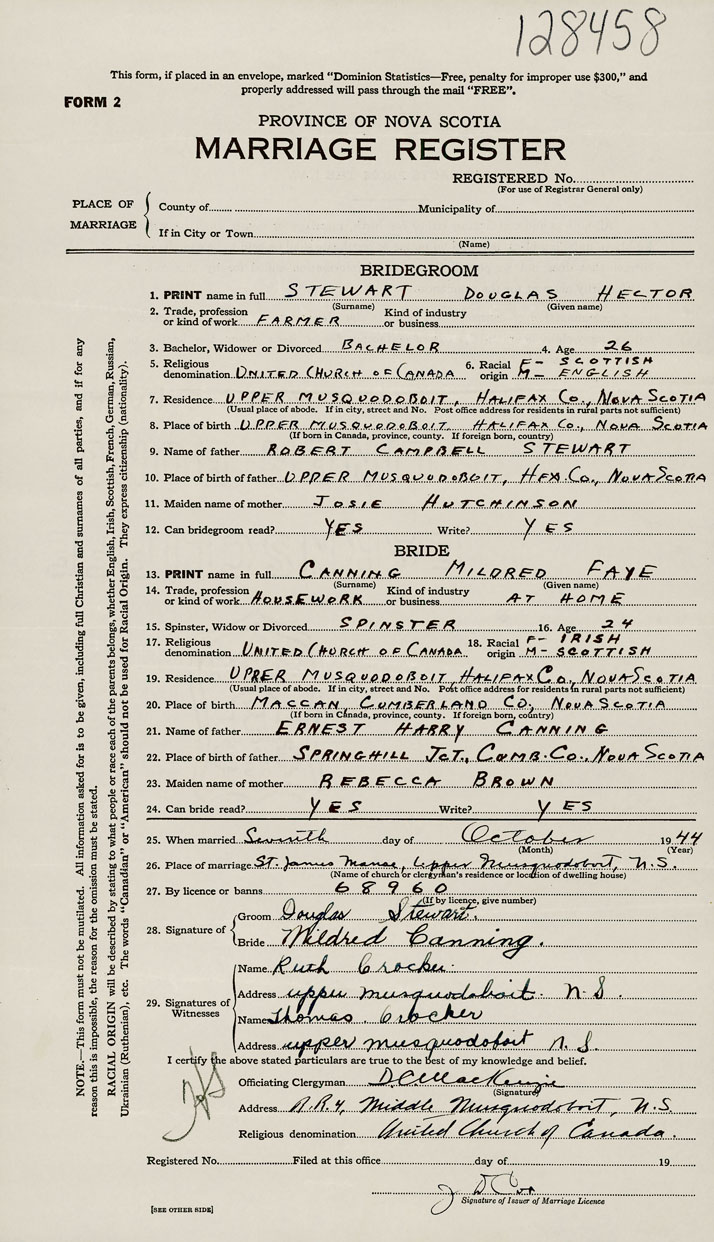 128458
This form, if placed in an envelope, marked "Dominion Statistics—Free, penalty for improper use $300," and
properly addressed will pass through the mail "FREE".
FORM 2
PROVINCE OF NOVA SCOTIA
MARRIAGE REGISTER
REGISTERED No.
(For use of Registrar General only)
PLACE OF MARRIAGE
County of Municipality of
If in City or Town
(Name)
BRIDEGROOM
1. PRINT name in full STEWART DOUGLAS HECTOR
(Surname) (Given name)
2. Trade, profession or kind of work FARMER Kind of industry or business
3. Bachelor, Widower or Divorced BACHELOR 4. Age 26
5. Religious denomination UNITED CHURCH OF CANADA 6. Racial origin F- SCOTTISH M- ENGLISH
7. Residence UPPER MUSQUODOBOIT, HALIFAX Co., NOVA SCOTIA
(Usual place of abode. If in city, street and No. Post office address for residents in rural parts not sufficient)
8. Place of birth UPPER MUSQUODOBOIT HALIFAX Co., NOVA SCOTIA
(If born in Canada, province, county. If foreign born, country)
9. Name of father ROBERT CAMPBELL STEWART
10. Place of birth of father UPPER MUSQUODOBOIT, HFX Co., NOVA SCOTIA
11. Maiden name of mother JOSIE HUTCHINSON
12. Can bridegroom read? YES Write? YES
BRIDE
13. PRINT name in full CANNING MILDRED FAYE
(Surname) (Given name)
14. Trade, profession or kind of work HOUSEWORK Kind of industry or business AT HOME
15. Spinster, Widow or Divorced SPINSTER 16. Age 24
17. Religious denomination UNITED CHURCH OF CANADA 18. Racial origin F- IRISH M- SCOTTISH
19. Residence UPPER MUSQUODOBOIT, HALIFAX Co., NOVA SCOTIA
(Usual place of abode. If in city, street and No. Post office address for residents in rural parts not sufficient)
20. Place of birth MACCAN, CUMBERLAND CO., NOVA SCOTIA
(If born in Canada, province, county. If foreign born, country)
21. Name of father ERNEST HARRY CANNING
22. Place of birth of father SPRINGHILL JCT., CUMB. CO., NOVA SCOTIA
23. Maiden name of mother REBECCA BROWN
24. Can bride read? YES Write? YES
25. When married Seventh day of October 1944
(Month) (Year)
26. Place of marriage St. James Manse, Upper Musquodoboit, N.S.
(Name of church or clergyman's residence or location of dwelling house)
27. By licence or banns 68960
(If by licence, give number)
28. Signature of
Groom Douglas Stewart.
Bride Mildred Canning.
29. Signatures of Witnesses
Name Ruth Crocker
Address upper musquodoboit N S.
Name Thomas Crocker
Address upper musquodoboit N. S.
I certify the above stated particulars are true to the best of my knowledge and belief.
Officiating Clergyman D C MacKenzie
(Signature)
Address R.R.4, Middle Musquodoboit, N.S.
Religious denomination United Church of Canada.
Registered No. Filed at this office day of 19
Signature of Issuer of Marriage Licence
[SEE OTHER SIDE]
NOTE.—This form must not be mutilated. All information asked for is to be given, including full Christian and surnames of all parties, and if for any
reason this is impossible, the reason for the omission must be stated.
RACIAL ORIGIN will be described by stating to what people or race each of the parents belongs, whether English, Irish, Scottish, French, German, Russian,
Ukrainian (Ruthenian), etc. The words "Canadian" or "American" should not be used for Racial Origin. They express citizenship (nationality).